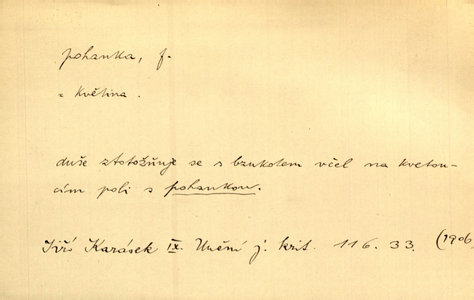 pohanka, f.
= květina.
duše ztotožňuje se s bzukotem včel na kvetou-
cím poli s pohankou.
Jiří Karásek IX. Umění j. krit. 116. 33. (1906